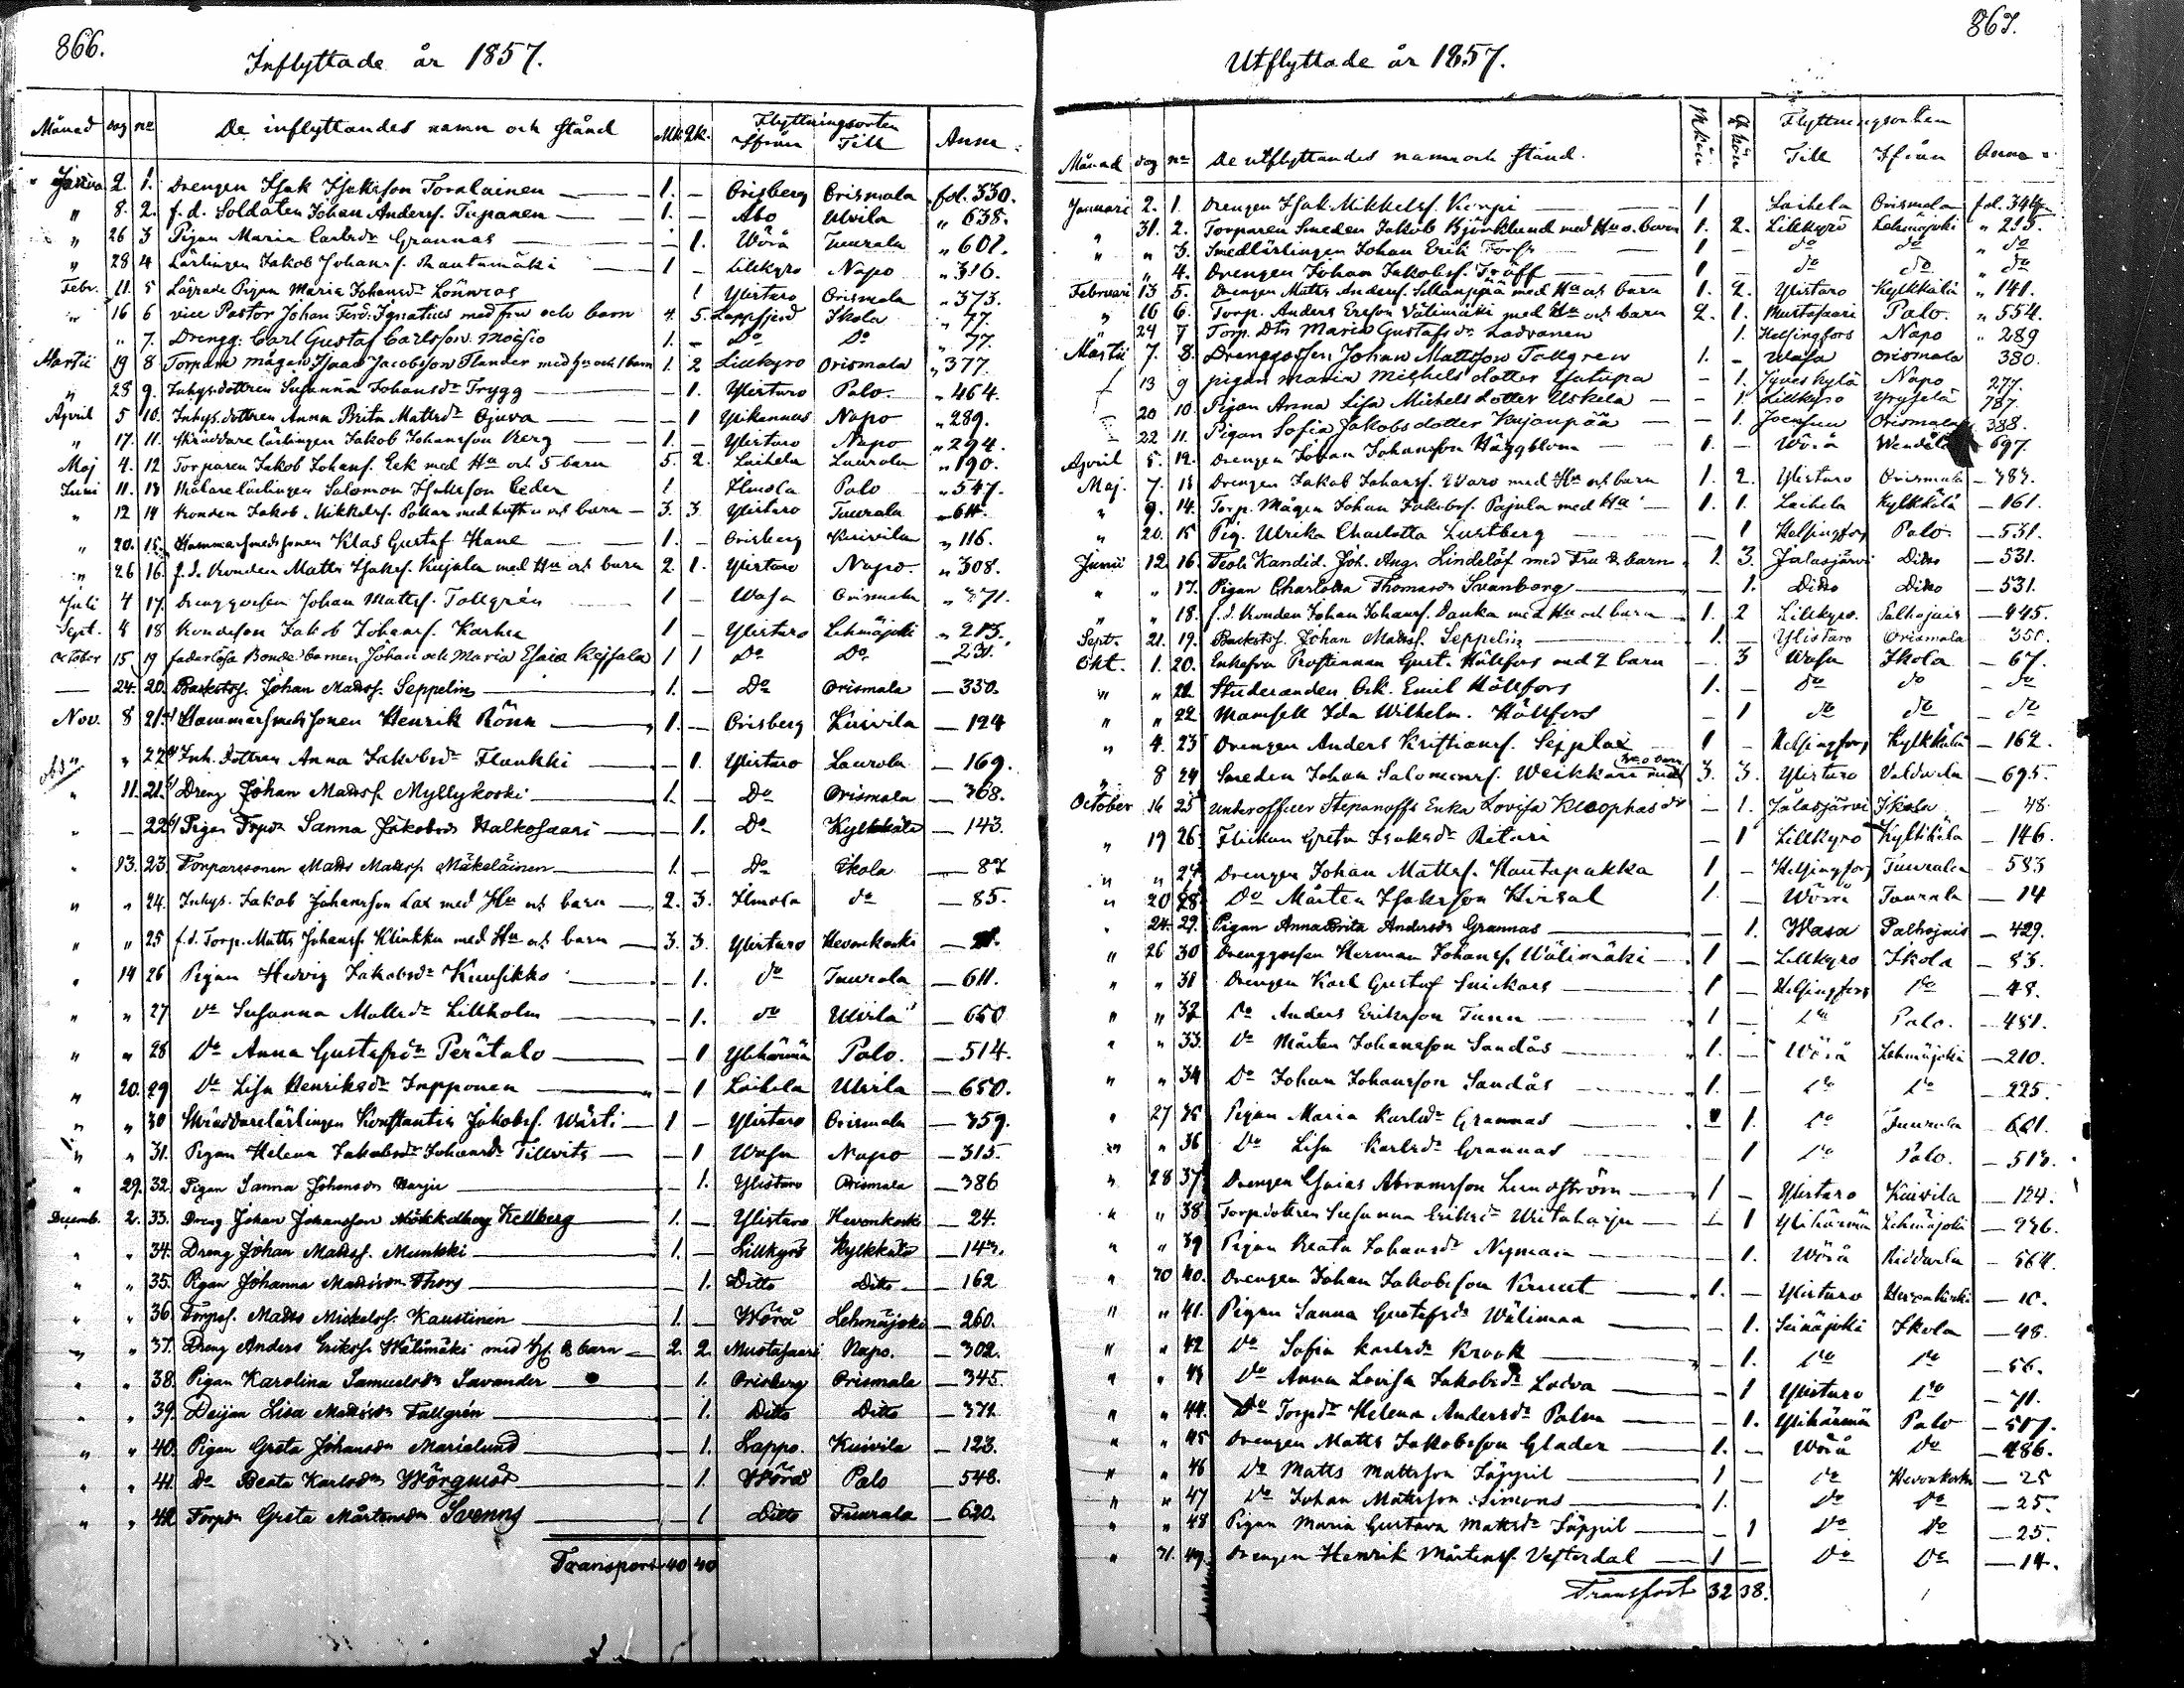 866.
Inflyttade år 1857.
Månad dag no De inflyttandes namn och stånd Mk. Qk. Flyttningsorten Ifrån Till Anm.
Janua 2. 1. Drengen Isak Isaksson Toralainen 1. - Orisberg Orismala fol. 330.
" 8. 2. f. d. Soldaten Johan Anderss. Tupanen 1. - Åbo Ulvila " 638.
" 26 3 Pigan Maria Carlsdr Grannas - 1. Wörå Tuurala " 601.
" 28 4 Lärlingen Jakob Johanss. Rautamäki 1 - Lillkyro Napo " 316.
Febr. 11. 5 Lägrade Pigan Maria Johansdr Lönnros 1 Ylistaro Orismala " 373.
" 16 6 vice Pastor Johan Ferd. Ignatius med fru och barn 4. 5. Lappfjerd Ikola " 77.
" " 7. Drengg. Carl Gustaf Carlsson Moisio 1. - Do Do " 77.
Martii 19 8 Torpare mågen Isaac Jacobsson Flander med Hu och 1 barn 1. 2 Lillkyro Orismala " 377.
" 28 9. Inhysdottren Susanna Johansdr Trygg - 1. Ylistaro Palo. " 464.
April 5 10. Inhys. dottren Anna Brita Mattsdr Ojuva - 1 Ylikannus Napo " 289.
" 17. 11. Skräddare lärlingen Jakob Johansson Berg 1. - Ylistaro Napo " 294.
Maj 4. 12 Torparen Jakob Johanss. Eek med Hu och 5 barn 5. 2. Laihela Laurola " 190.
Juni 11. 13 Målare lärlingen Salomon Isaksson Ceder 1 Ilmola Palo " 547.
" 12 14 Bonden Jakob Mikkelss. Pokan med hustru och barn 3. 3. Ylistaro Tuurala " 611.
" 20. 15. Hammarsmedssonen Klas Gustaf Hane 1. - Orisberg Kuivila " 116.
" 26 16. f. d. Bonden Matts Isakss. Kujala med Hu och barn 2. 1. Ylistaro Napo. " 308.
Juli 4 17. Drenggossen Johan Mattss. Tallgrén 1 - Wasa Orismala " 371.
Sept. 4 18 Bondeson Jakob Johanss. Karhu 1 - Ylistaro Lehmäjoki " 213.
October 15 19 faderlösa Bonde barnen Johan och Maria Esaia Kejsala 1 1 Do Do 231.
24. 20. Backstsf. Johan Matss. Seppelin 1. - Do Orismala 330.
Nov. 8 21. Hammarsmedssonen Henrik Rönn 1. - Orisberg Kuivila 124
" 22 Inh. dottren Anna Jakobsdr Flankki - 1. Ylistaro Laurola 169.
" 11. 21. Dreng Johan Matss. Myllykoski 1. - Do Orismala 368.
" 22 Pigan Torpdr Sanna Jakobsdr Halkosaari - 1. Do Kylkkälä 143.
" 13. 23. Torparesonen Matts Matss. Mäkeläinen 1. - Do Ikola 87
" " 24. Inhys. Jakob Johansson Lax med Hu och barn 2. 3. Ilmola do 85.
" " 25 f. d. Torp. Matts Johanss. Klinkku med Hu och barn 3. 3. Ylistaro Hevonkoski
" 14 26 Pigan Hedvig Jakobsdr Kuusikko - 1. do Tuurala 611.
" " 27 do Susanna Mattsdr Lillholm - 1. do Ulvila 650
" " 28 Do Anna Gustafsdr Perätalo - 1 Ylihärmä Palo. 514.
" 20. 29 Do Lisa Henriksdr Impponen - 1 Laihela Ulvila 650.
" " 30 Skräddarelärlingen Konstantin Jakobss. Wärti 1 - Ylistaro Orismala 359.
" " 31. Pigan Helena Jakobsdr Johansdr Tillvits - 1 Wasa Napo 315.
" 29. 32. Pigan Sanna Johansdr Harju - 1. Ylistaro Orismala 386
Decemb. 2. 33. Dreng Johan Johansson Kellberg 1. - Ylistaro Hevonkoski 24.
" " 34. Dreng Johan Matss. Munkki 1. - Lillkyrö Kylkkälä 143.
" " 35. Pigan Johanna Matsdr Thors - 1. Ditto Ditto 162
" " 36. Torpss. Matts Mickelss. Kaustinen 1. - Wörå Lehmäjoki 260.
" " 37. Dreng Anders Erikss. Wälimäki med Hu & barn 2. 2. Mustasaari Napo. 302.
" " 38. Pigan Karolina Samuelsdr Savander - 1. Orisberg Orismala 345.
" " 39. Peijan Lisa Matsdr Tallgrén - 1. Ditto Ditto 371.
" " 40. Pigan Greta Johansdr Marielund - 1. Lappo. Kuivila 123.
" " 41. Do Beata Karlsdr Thörqvist - 1. Wörå Palo 548.
" " 42 Torpdr Greta Mårtensdr Svenns - 1 Ditto Tuurala 620.
Transport 40 40
867.
Utflyttade år 1857.
Månad dag no De utflyttandes namn och stånd. M kön Q kön Flyttningsorten Till Ifrån Anm.
Januari 2. 1. Drengen Isak Mikkelss. Korpi 1 Laihela Orismala fol. 344.
" 31. 2. Torparen Smeden Jakob Björklund med Hu o. barn 1. 2. Lillkyro Lehmäjoki " 215.
" " 3. Smedlärlingen Johan Erik Fors 1 - do do " do
" 4. Drengen Johan Jakobss. Träff 1 - do do " do
Februari 13 5. Drengen Matts Anderss. med Hu och barn 1. 2. Ylistaro Kylkkälä " 141.
" 16 6. Torp. Anders Ersson Välimäki med Hu och barn 2. 1. Mustasaari Palo. " 554.
" 24 7 Torp. dtr Maria Gustafsdr Ladvanen 1. Helsingfors Napo " 289
Martii 7. 8. Drenggossen Johan Mattsson Tallgren 1. - Wasa Orismala 380.
13 9 pigan Maria Michels dotter Ylitupa - 1. Jyväskylä Napo 277.
20 10. Pigan Anna Lisa Michels dotter Uskela - 1 Lillkyro 787.
22 11. Pigan Sofia Jakobs dotter Kujanpää - 1. Joensuu Orismala 388.
April 5. 12. Drengen Johan Johansson Häggblom 1. - Wörå 697.
Maj. 7. 13 Drengen Jakob Johanss. Waro med Hu och barn 1. 2. Ylistaro Orismala 383.
" 9. 14. Torp. Mågen Johan Jakobss. Pajula med Hu 1. 1. Laihela Kylkkälä 161.
" 20. 15 Pig. Ulrika Charlotta Lustberg - 1 Helsingfors Palo. 531.
Junii 12. 16. Teol. Kandid. Joh. Aug. Lindelöf med Fru & barn 1. 3. Jalasjärvi Ditto 531.
" " 17. Pigan Charlotta Thomasdr Svanberg - 1. Ditto Ditto 531.
" " 18. f. d. Bonden Johan Johanss. Danka med Hu och barn 1. 2 Lillkyro. Palhojais 445.
Sept. 21. 19. Backstsf. Johan Matss. Seppelin 1. - Ylistaro Orismala 350.
Okt. 1. 20. Enkefru Prostinnan Gust. Hällfors med 2 barn - 3 Wasa Ikola 67.
" " 21 Studeranden Osk. Emil Hällfors 1. - do do do
" " 22 Mamsell Ida Wilhelm. Hällfors - 1 do do do
" 4. 23 Drengen Anders Kristianss. Seppläi 1 - Helsingfors Kylkkälä 162.
" 8 24 Smeden Johan Salomonss. Weikkari med Hu o barn 3. 3. Ylistaro Valdala 695.
October 16 25 Underofficer Stepanoffs Enka Lovisa Kleophasdr - 1. Jalasjärvi Ikola 48.
" 19 26. Flickan Greta Isaksdr Ritari - 1 Lillkyro Kylkkälä 146.
" " 27 Drengen Johan Mattss. Hautapakka 1 - Helsingfors Tuurala 583
" 20 28. Do Mårten Isaksson Hirsal 1. - Wörå Tuurala 14
" 24. 29. Pigan Anna Brita Andersdr Grannas - 1. Wasa Palhojais 429.
" 26 30 Drenggossen Herman Johanss. Wälimäki 1 - Lillkyro Ikola 83.
" " 31 Drengen Karl Gustaf Snickars 1 - Helsingfors Do 48.
" " 32 Do Anders Eriksson Tunn 1 - Do Palo. 481.
" " 33. Do Mårten Johansson Sandås 1. - Wörå Lehmäjoki 210.
" " 34 Do Johan Johansson Sandås 1. - Do Do 225.
" 27 35 Pigan Maria Karlsdr Grannas 1. Do Tuurala 601.
" " 36 Do Lisa Karlsdr Grannas - 1 Do Palo. 513.
" 28 37 Drengen Esaias Abramsson Lundström 1 - Ylistaro Kuivila 124.
" " 38. Torpdottren Susanna Eriksdr Uitaharju - 1 Ylihärmä Lehmäjoki 236.
" " 39 Pigan Beata Johansdr Nyman - 1. Wörå 564.
" 30 40. Drengen Johan Jakobsson Knuut 1. - Ylistaro Hevonkoski 10.
" " 41. Pigan Sanna Gustafsdr Wäliman - 1. Seinäjoki Ikola 48.
" " 42 Do Sofia Karlsdr Krook - 1. Do Do 56.
" " 43 Do Anna Lovisa Jakobsdr Ladva - 1 Ylistaro Do 71.
" " 44. Do Torpdr Helena Andersdr Palm - 1. Ylihärmä Palo 517.
" " 45 Drengen Matts Jakobsson Glader 1. - Wörå Do 486.
" " 46 Do Matts Mattsson Jäppil 1 - Do Hevonkoski 25
" " 47 Do Johan Matsson Simons 1. Do Do 25.
" " 48 Pigan Maria Gustava Mattsdr Jäppil - 1 Do Do 25.
" 31. 49. Drengen Henrik Mårtenss. Vesterdal 1 - Do Do 14.
Transport 32 38.